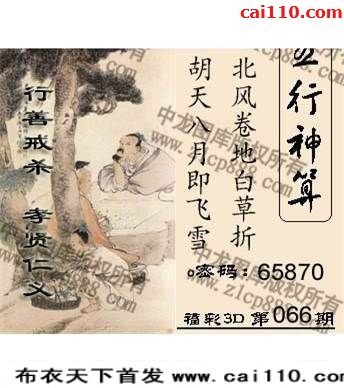 cai110.com
五行神算
北风卷地白草折
胡天八月即飞雪
行善戒杀 孝贤仁义
密码：65870
福彩3D 第066期
中龙图库版权所有
www.z1cp888.com
布衣天下首发 www.cai110.com